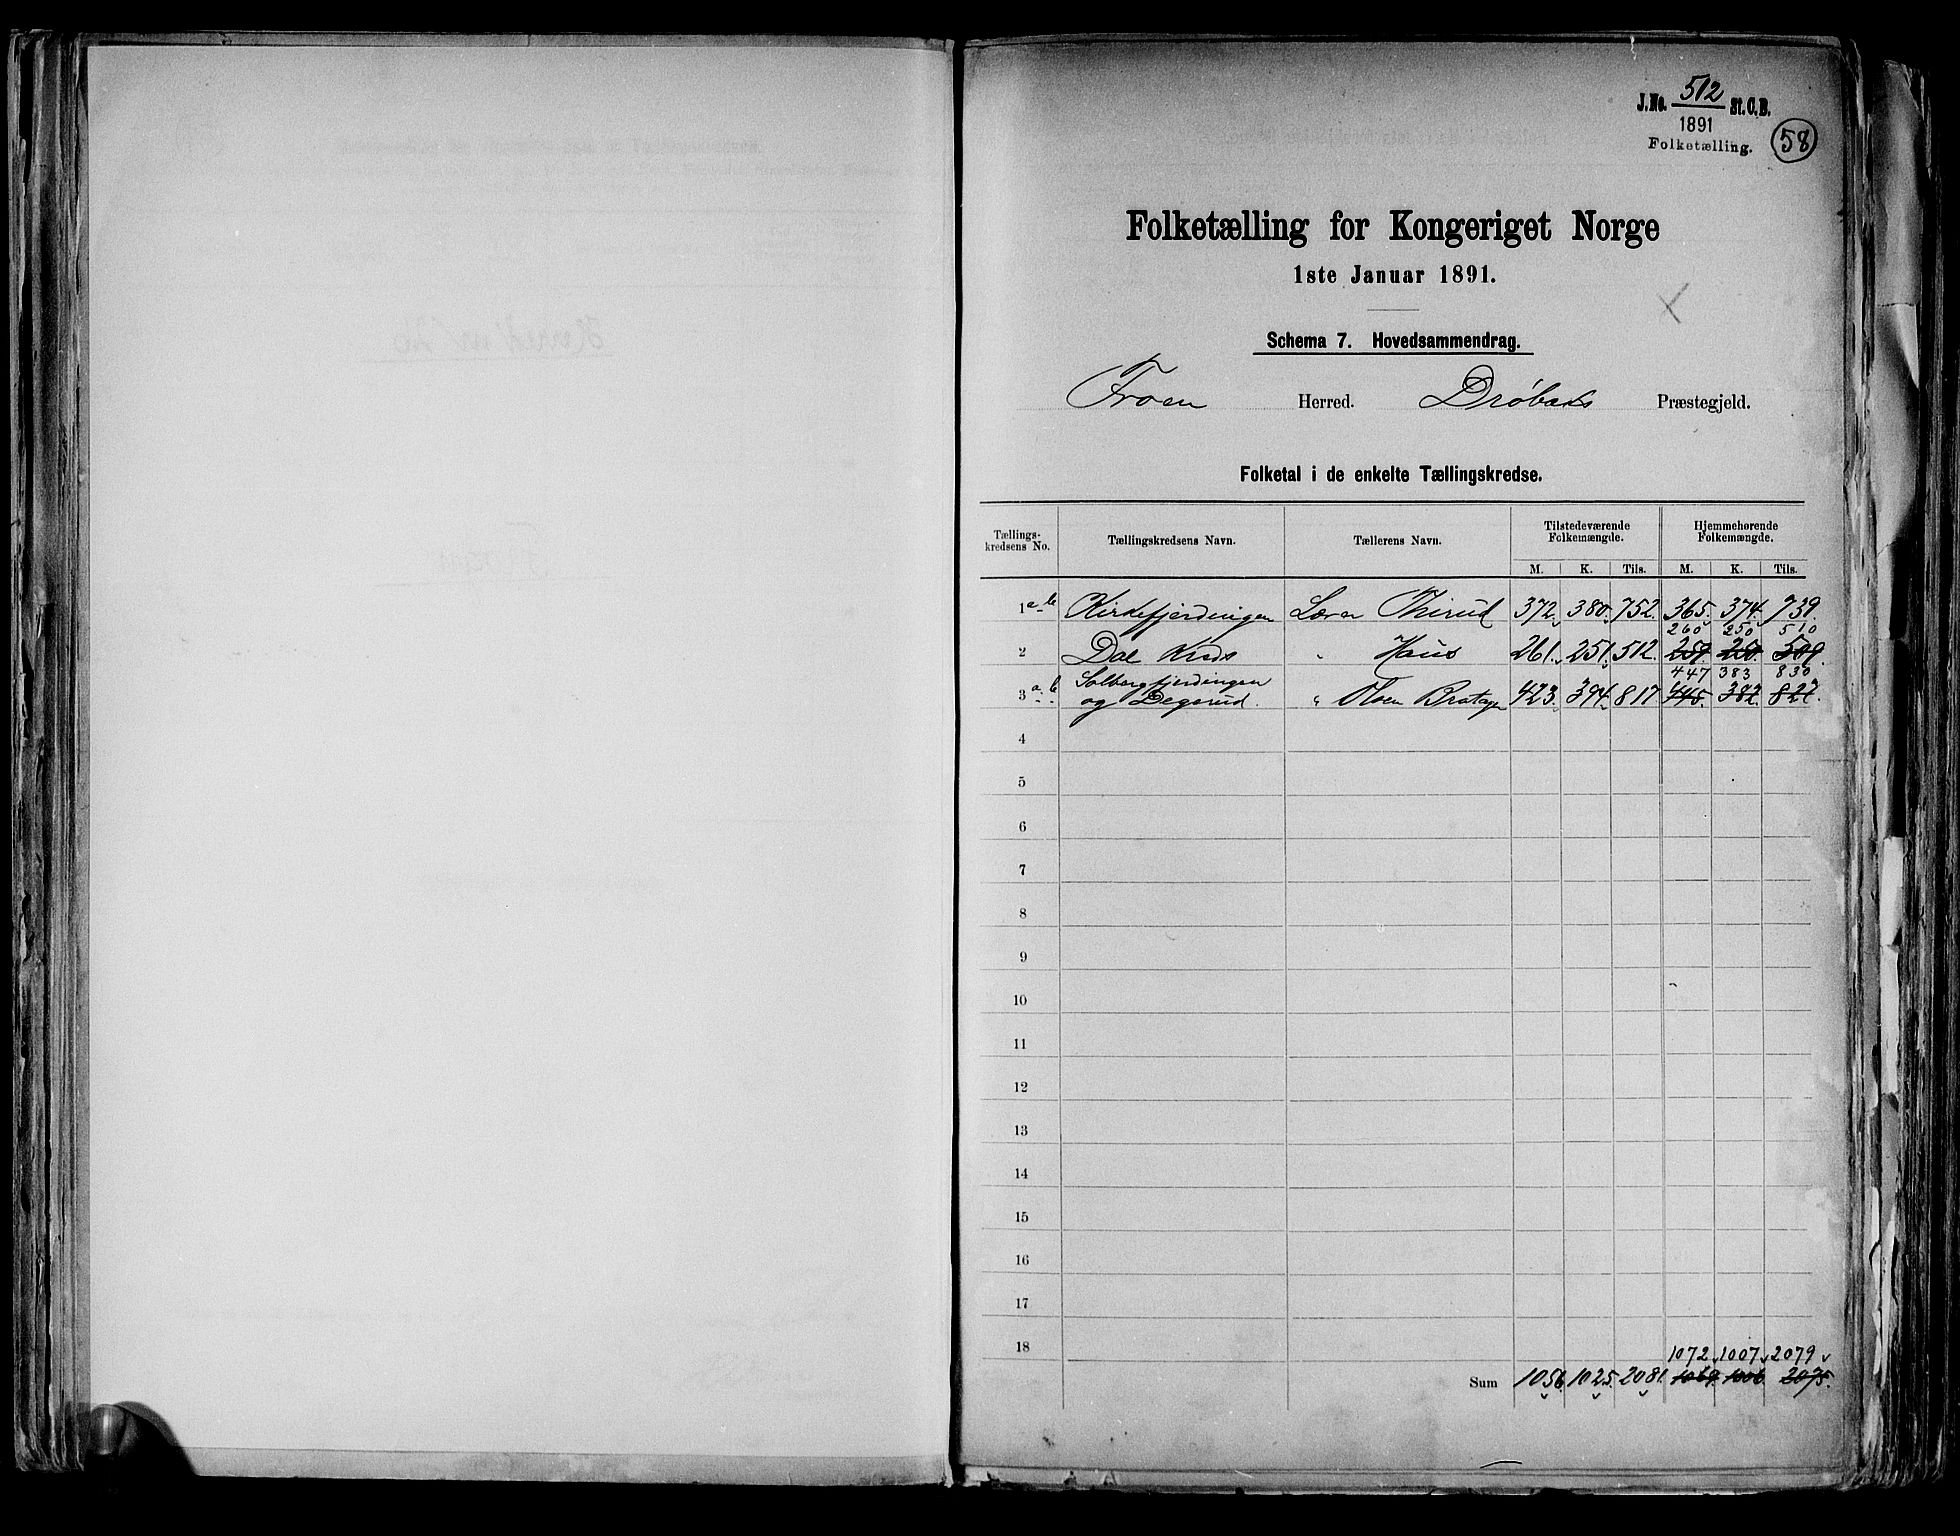 J.No. 512 St.C.B.
1891
Folketælling.
58
Folketælling for Kongeriget Norge
1ste Januar 1891.
Schema 7. Hovedsammendrag.
Froen Herred. Drøbaks Præstegjeld.
Folketal i de enkelte Tællingskredse.
Tællings-kredsens No. Tællingskredsens Navn. Tællerens Navn. Tilstedeværende Folkemængde. Hjemmehørende Folkemængde.
M. K. Tils. M. K. Tils.
1 a-b Kirkefjerdingen Lærer Thirud 372. 380. 752. 365. 374. 739.
260 250 510
2 Dal Kreds " Haus 261. 251. 512. 259. 250. 509.
447 383 830
3 a-b Solbergfjerdingen
og Degerud. " Olsen Bratager 423. 394. 817 445. 382. 827.
4
5
6
7
8
9
10
11
12
13
14
15
16
17
18
1072 1007 2079
Sum 1056. 1025. 2081. 1069. 1006. 2075.